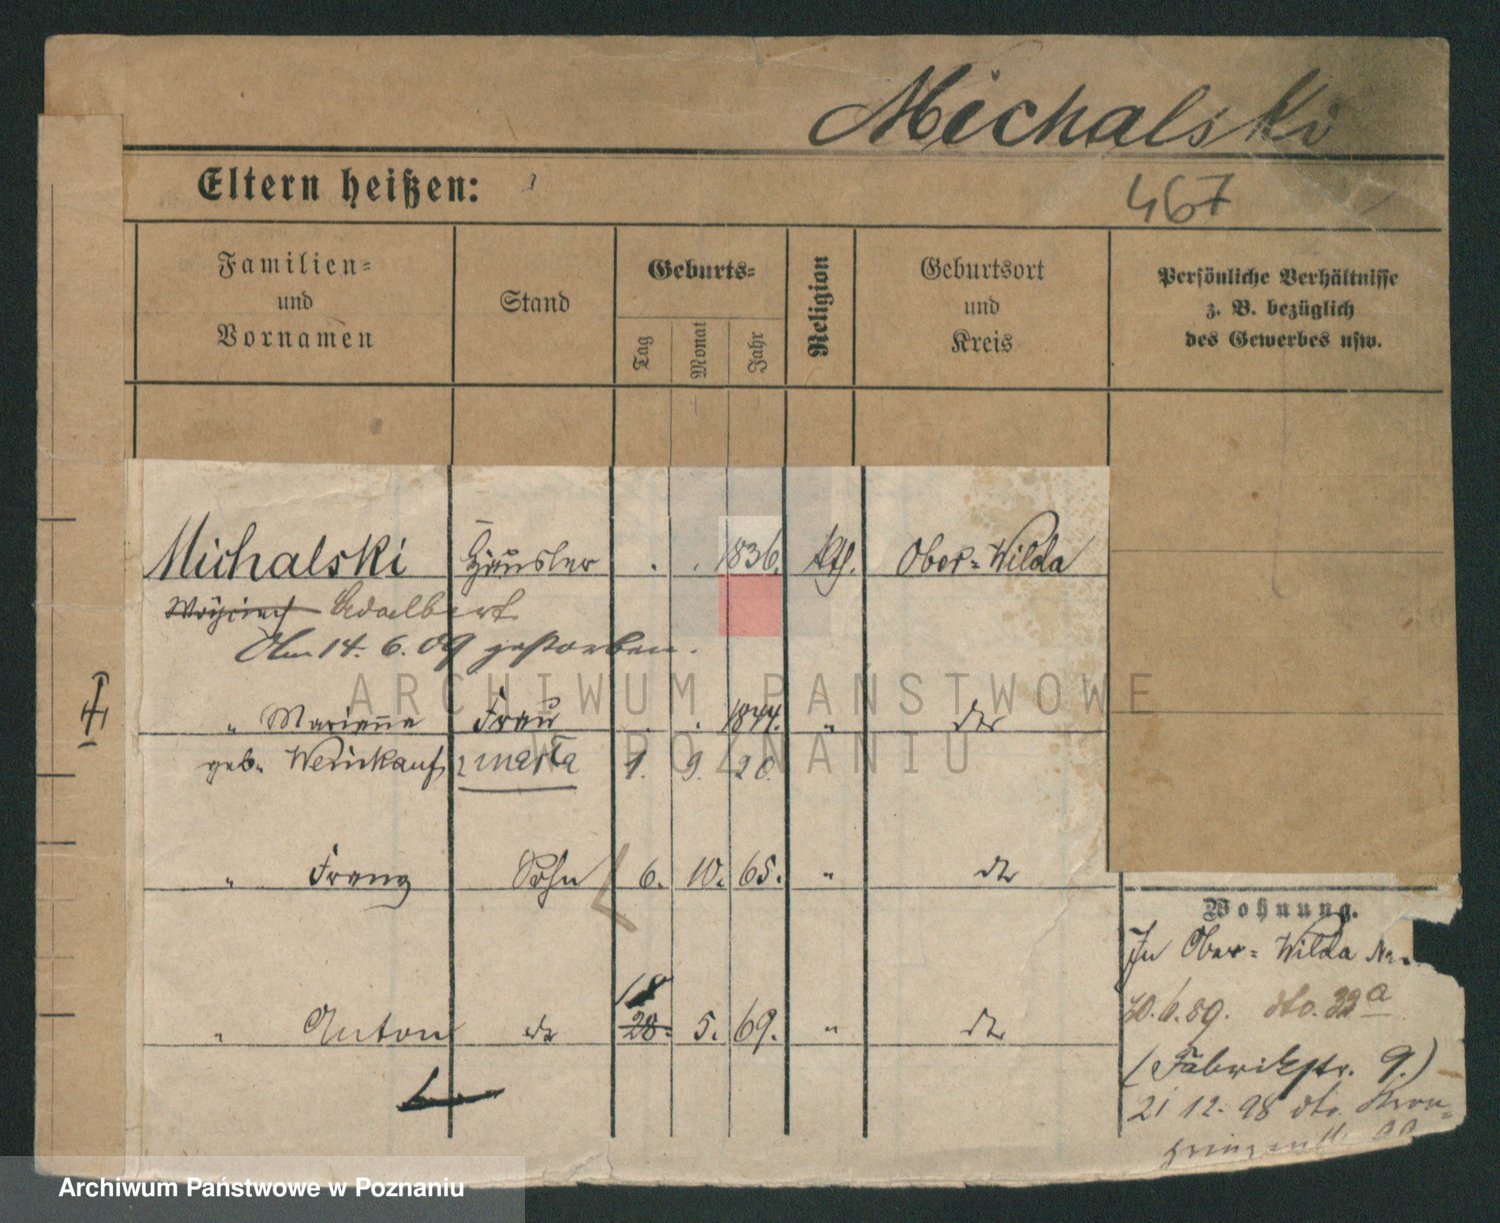 Michalski
Eltern heißen:
467
Familien=
und
Vornamen
Stand
Geburts=
Tag
Monat
Jahr
Religion
Geburtsort
und
Kreis
Persönliche Verhältnisse
z. B. bezüglich
des Gewerbes usw.
Michalski Häusler . . 1836. kth. Ober=Wilda
Woyciech Adalbert
Am 14. 6. 09 gestorben.
" Marianne Frau . . 1844. " dto
geb. Weinkauf, zmarła 1. 9. 20.
" Franz Sohn 6. 10. 65. " dto
18
" Anton do 28. 5. 69. " dto
Wohnung.
In Ober=Wilda No.
dto. 32a
(Fabrikstr. 9.)
21 12. 98 dto. Kron=
prinzenstr.
ARCHIWUM PAŃSTWOWE
W POZNANIU
Archiwum Państwowe w Poznaniu